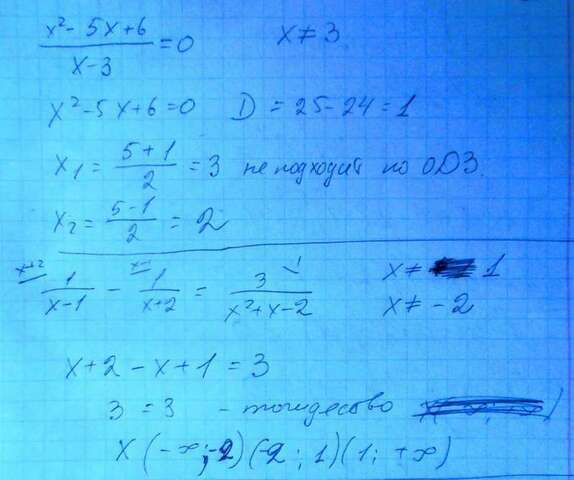 x² - 5x + 6 / x - 3 = 0   x ≠ 3
x² - 5x + 6 = 0   D = 25 - 24 = 1
x₁ = 5 + 1 / 2 = 3 не подходит по ОДЗ.
x₂ = 5 - 1 / 2 = 2
x+2 1 / x - 1 - x-1 1 / x + 2 = 1 3 / x² + x - 2   x ≠ 1
x ≠ -2
x + 2 - x + 1 = 3
3 = 3 - тождество
x (-∞; -2)(-2; 1)(1; +∞)